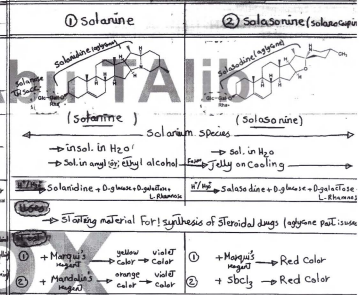 ① Solanine
② Solasonine (solancarpin
Solanidine (aglycone)
Solasodine (aglycone)
Abu TAlib
CH₃
(Solanine)
(Solasonine)
Solanium species
→ insol. in H₂O
→ Sol. in H₂O
→ Sol. in amyl or ethyl alcohol → Jelly on Cooling
→ Solanidine + D-glucose + D-galactose + L-Rhamnose
→ Solasodine + D-glucose + D-galactose + L-Rhamnose
→ Starting material For! synthesis of steroidal drugs (aglycone Part is used
① + Marqui's reagent → yellow color → violet color
① + Marqui's reagent → Red Color
② + Mandalin's reagent → orange color → violet color
② + Sbcl₃ → Red Color